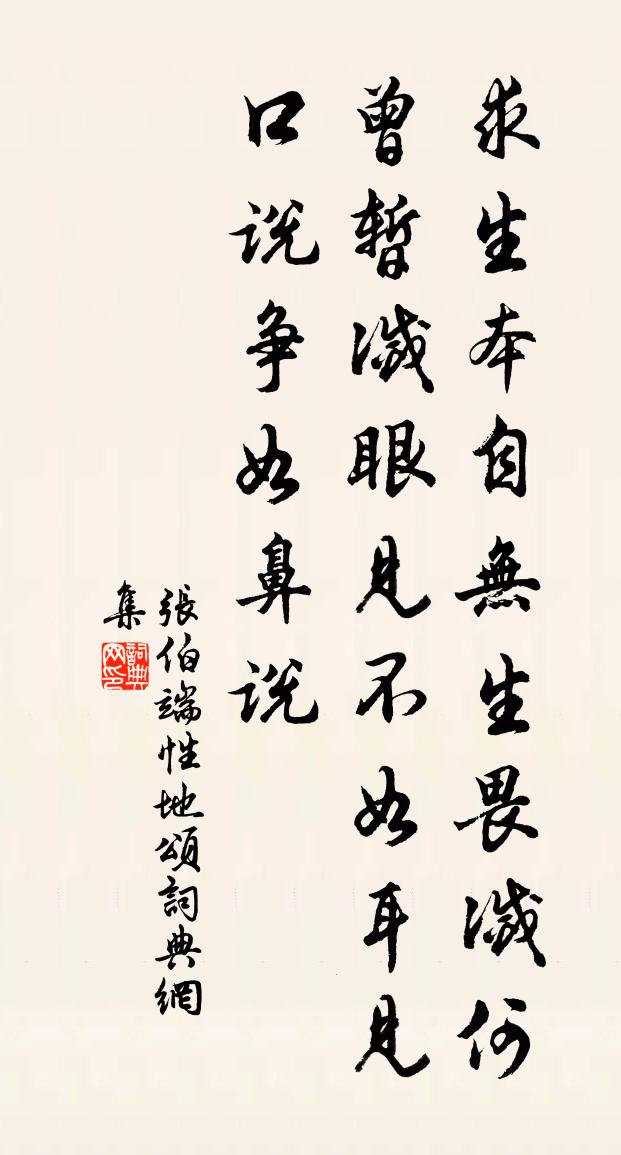 求生本自無生畏滅何
曾暫滅眼見不如耳見
口说争如鼻说
張伯端性地頌詞典網
集
詞典
网印